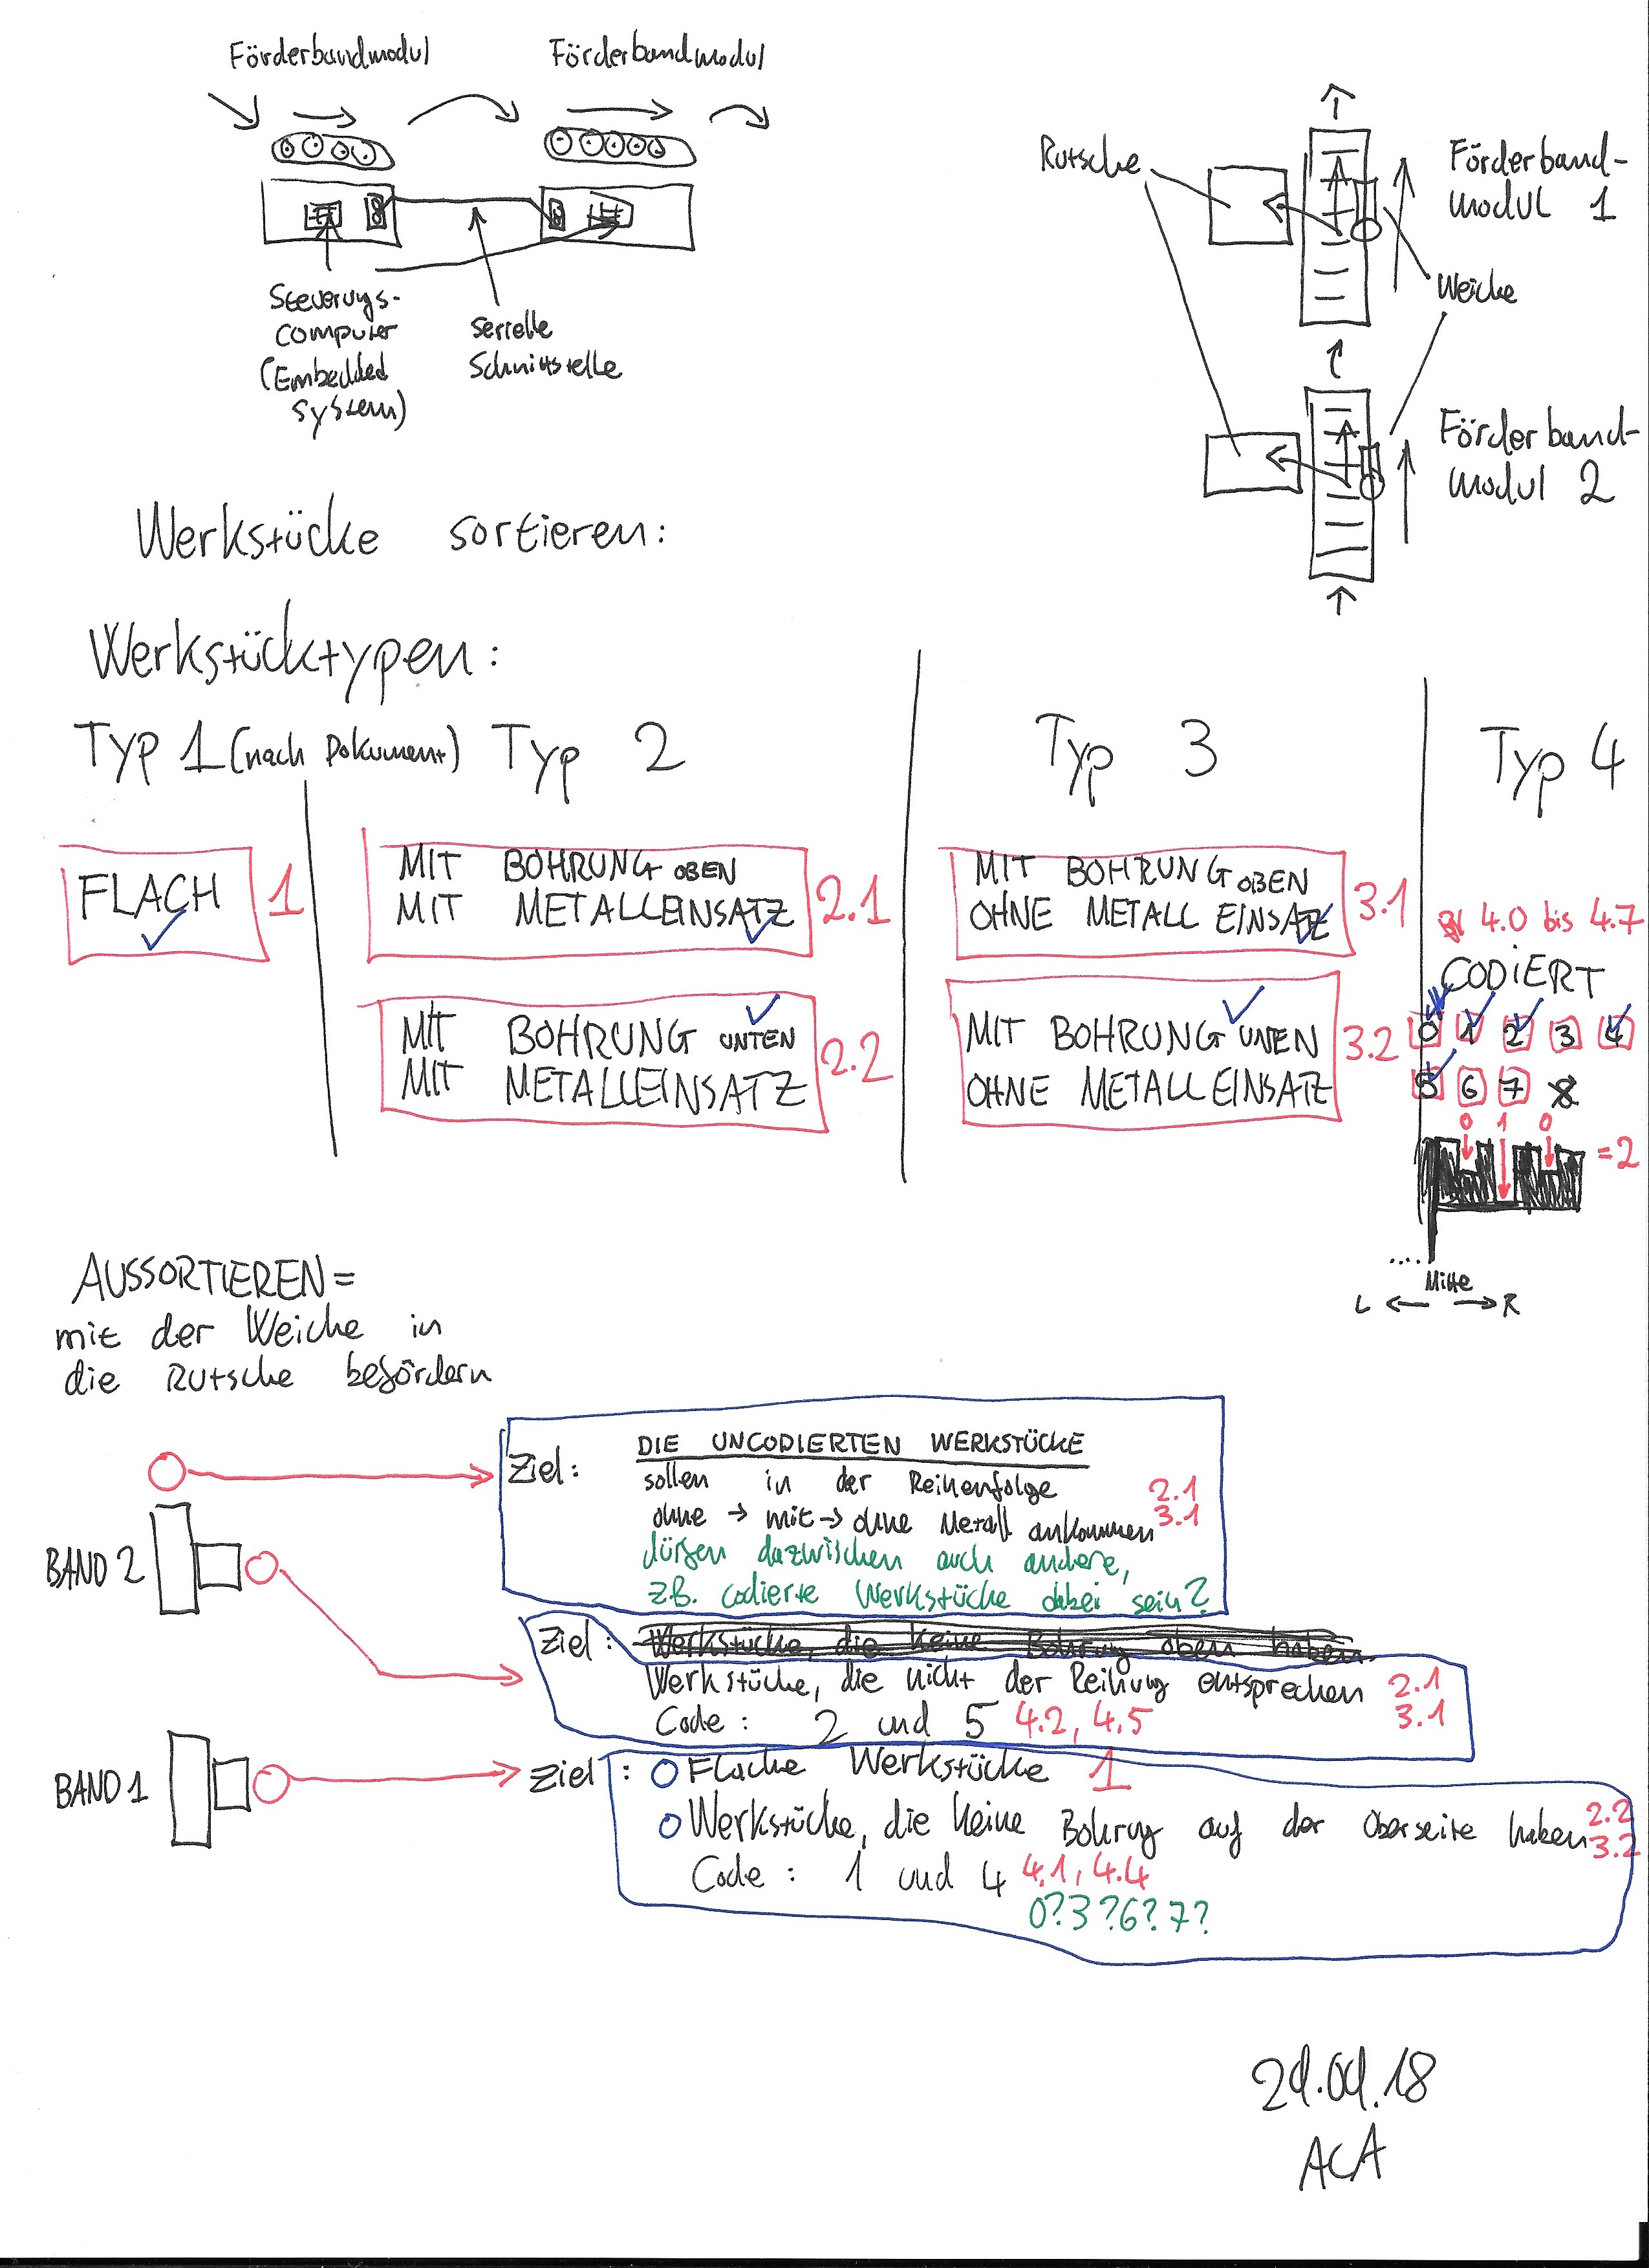 Förderbandmodul
Förderbandmodul
Steuerungs-
computer
(Embedded
system)
serielle
Schnittstelle
Rutsche
Förderband-
modul 1
Weiche
Förderband-
modul 2
Werkstücke sortieren:
Werkstücktypen:
Typ 1 (nach Dokument)
FLACH
1
Typ 2
MIT BOHRUNG OBEN
MIT METALLEINSATZ
2.1
MIT BOHRUNG UNTEN
MIT METALLEINSATZ
2.2
Typ 3
MIT BOHRUNG OBEN
OHNE METALLEINSATZ
3.1
MIT BOHRUNG UNTEN
OHNE METALLEINSATZ
3.2
Typ 4
4.0 bis 4.7
CODIERT
0 1 2 3 4
5 6 7 8
0 1 0
=2
.... Mitte
L R
AUSSORTIEREN =
mit der Weiche in
die Rutsche befördern
BAND 2
Ziel: DIE UNCODIERTEN WERKSTÜCKE
sollen in der Reihenfolge 2.1
ohne → mit → ohne Metall ankommen 3.1
dürfen dazwischen auch andere,
z.B. codierte Werkstücke dabei sein?
Ziel: Werkstücke, die keine Bohrung oben haben.
Werkstücke, die nicht der Reihung entsprechen 2.1
3.1
Code: 2 und 5 4.2, 4.5
BAND 1
Ziel: Flache Werkstücke 1
Werkstücke, die keine Bohrung auf der Oberseite haben 2.2
3.2
Code: 1 und 4 4.1, 4.4
0? 3? 6? 7?
ACA